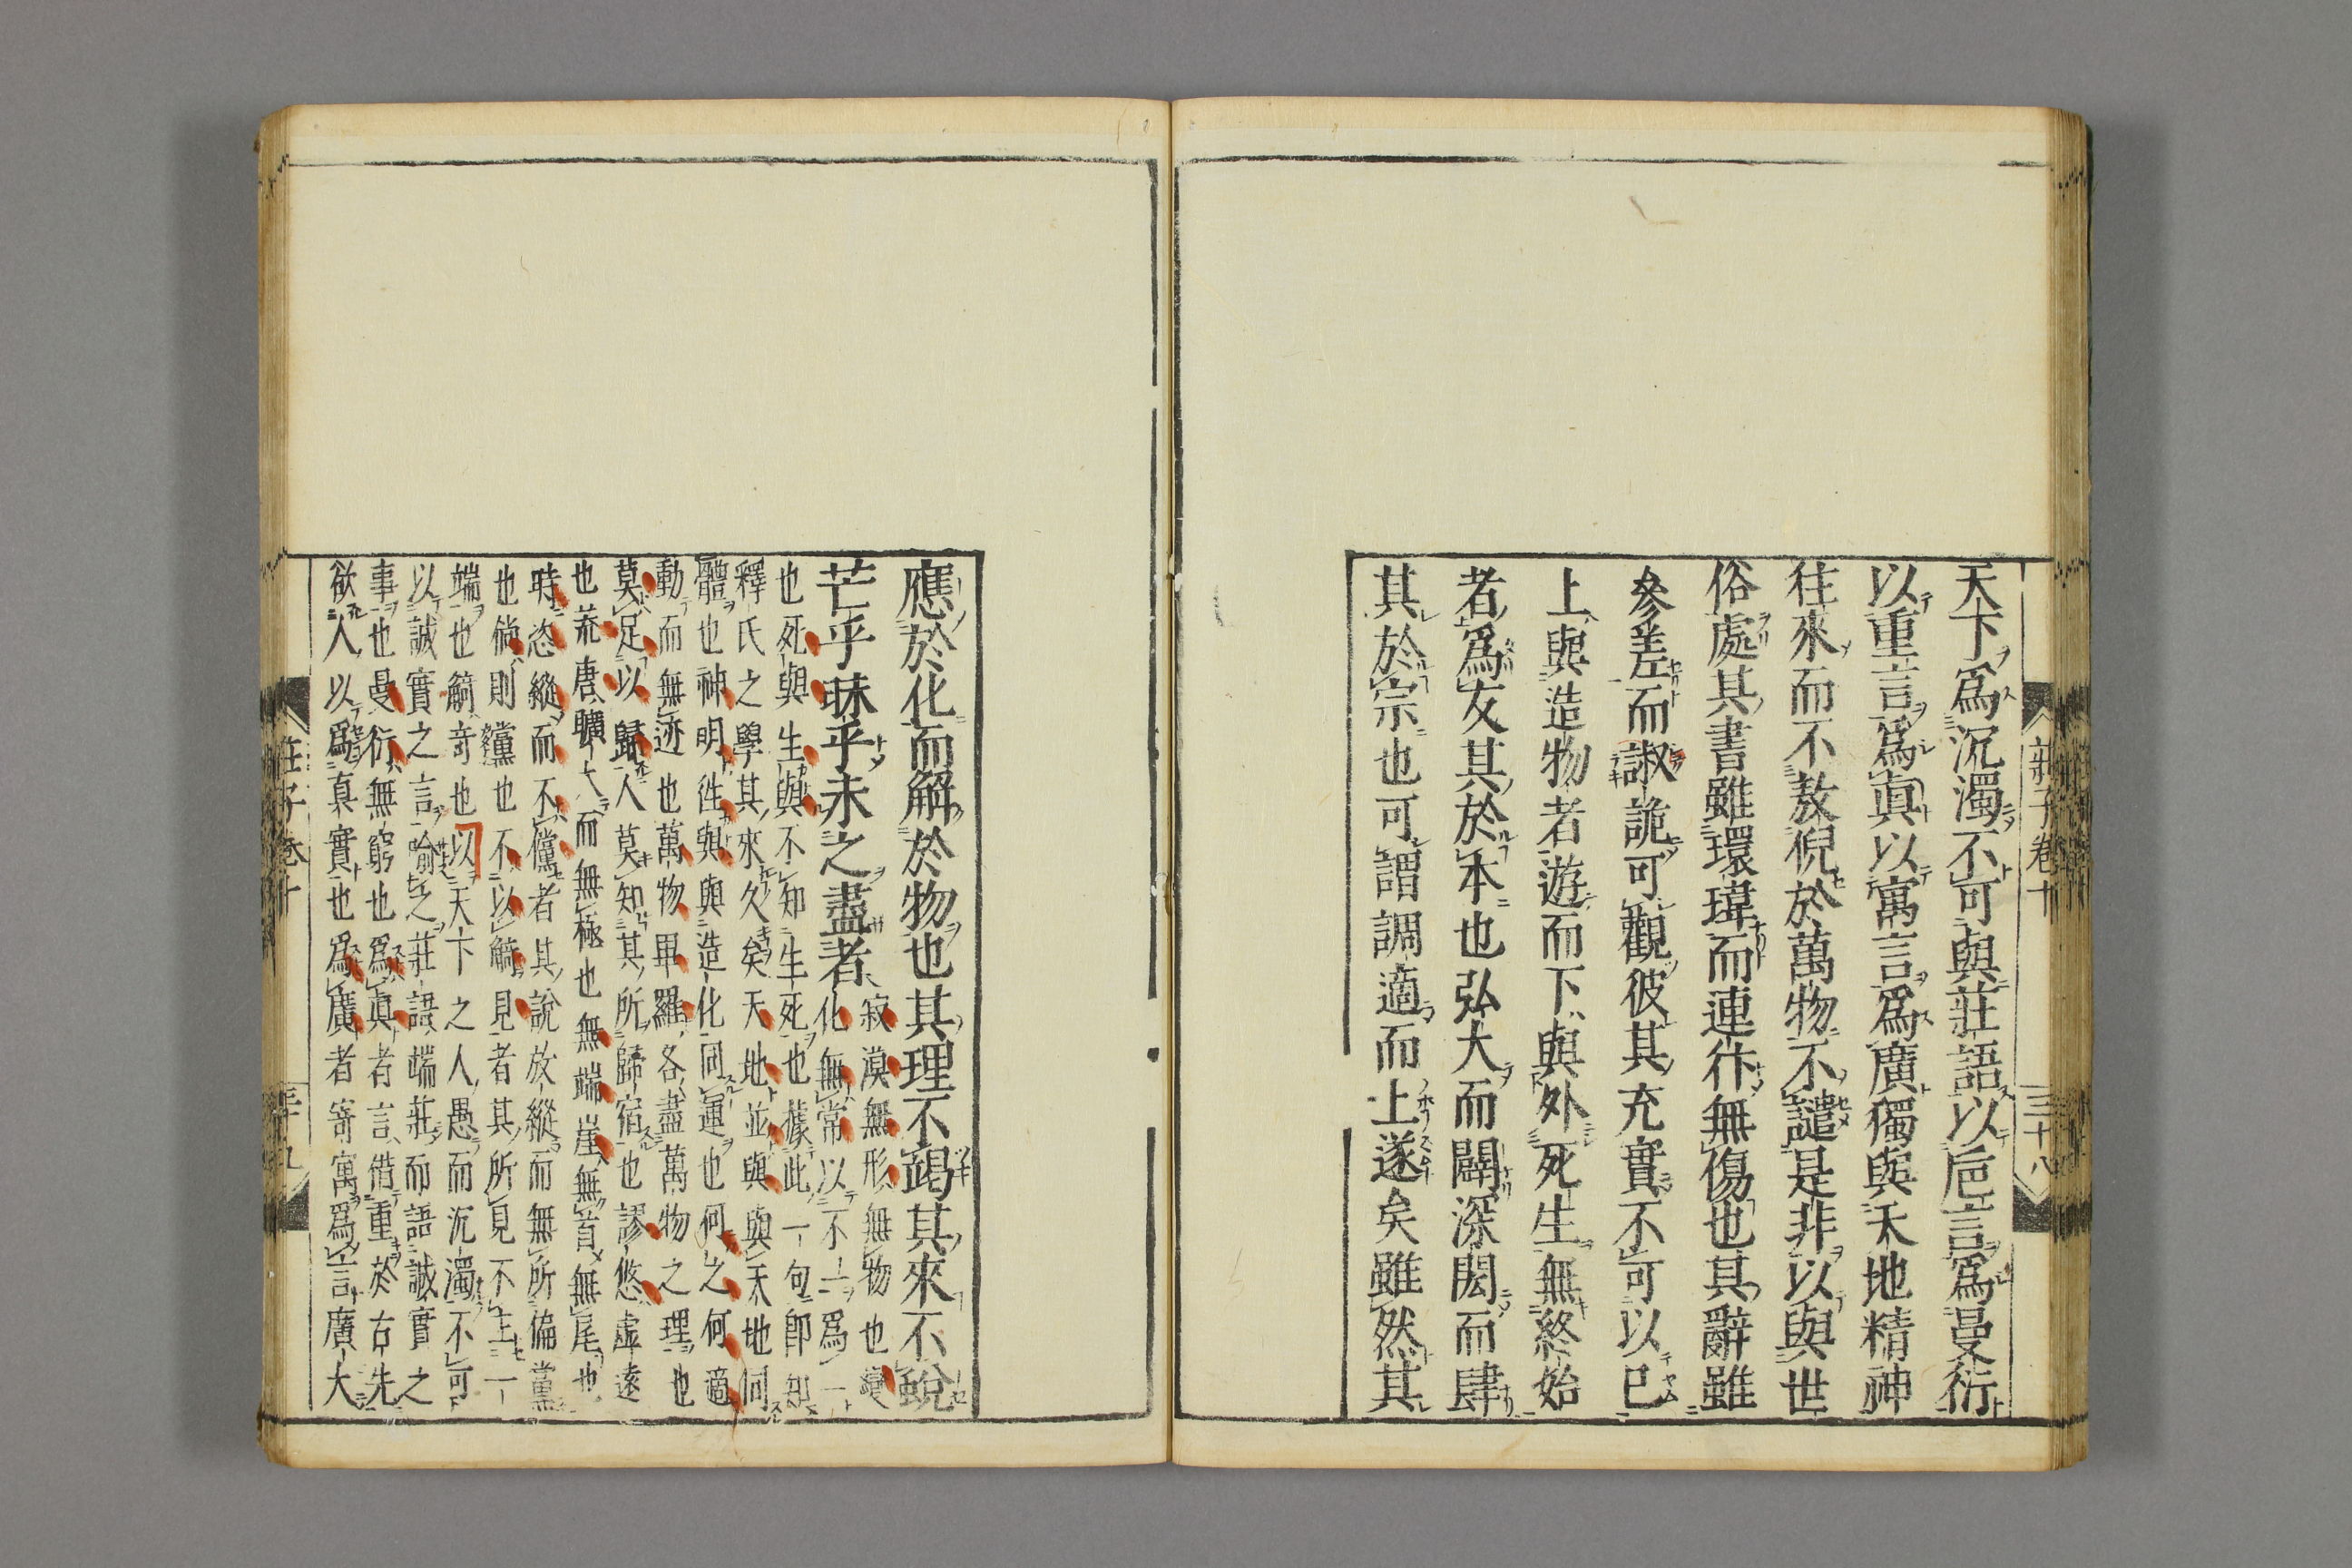 莊子卷十 三十八
天下爲沉濁不可與莊語以巵言爲曼衍
以重言爲眞以寓言爲廣獨與天地精神
往來而不敖倪於萬物不譴是非以與世
俗處其書雖環瑋而連犿無傷也其辭雖
參差而諔詭可觀彼其充實不可以已
上與造物者遊而下與外死生無終始
者爲友其於本也弘大而闢深閎而肆
其於宗也可謂調適而上遂矣雖然其
應於化而解於物也其理不竭其來不蛻
芒乎昧乎未之盡者
寂漠無形無物也變
化無常以不一爲一
也死與生與不知生死也據此一句即知
釋氏之學其來久矣天地並與與天地同
體也神明徃與與造化同運也何之何適
動而無迹也萬物畢羅各盡萬物之理也
莫足以歸人莫知其所歸宿也謬悠虛遠
也荒唐曠大而無極也無端崖無首無尾也
時恣縱而不儻者其說放縱而無所偏黨
也儻則黨也不以觭見者其所見不主一
端也觭奇也以天下之人愚而沉濁不可
以誠實之言喻之莊語端莊而語誠實之
事也曼衍無窮也爲眞者言借重於古先
欲人以爲真實也爲廣者寄寓爲言廣大
莊子卷十 三十九